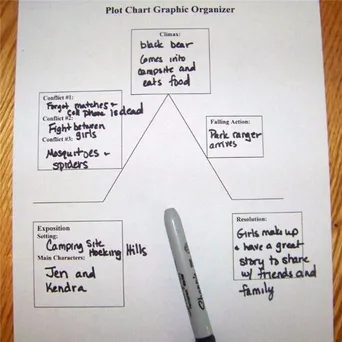 Plot Chart Graphic Organizer
Climax:
black bear
comes into
campsite and
eats food
Conflict #1:
Forgot matches &
cell phone is dead
Conflict #2:
Fight between
girls
Conflict #3:
Mosquitoes &
spiders
Falling Action:
Park ranger
arrives
Exposition
Setting:
Camping Site
Hocking Hills
Main Characters:
Jen and
Kendra
Resolution:
Girls make up
& have a great
story to share
w/ friends and
family
Sharpie